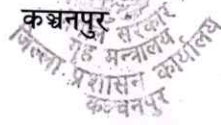 कञ्चनपुर
सरकार
गृह मन्त्रालय
जिल्ला प्रशासन कार्यालय
कञ्चनपुर